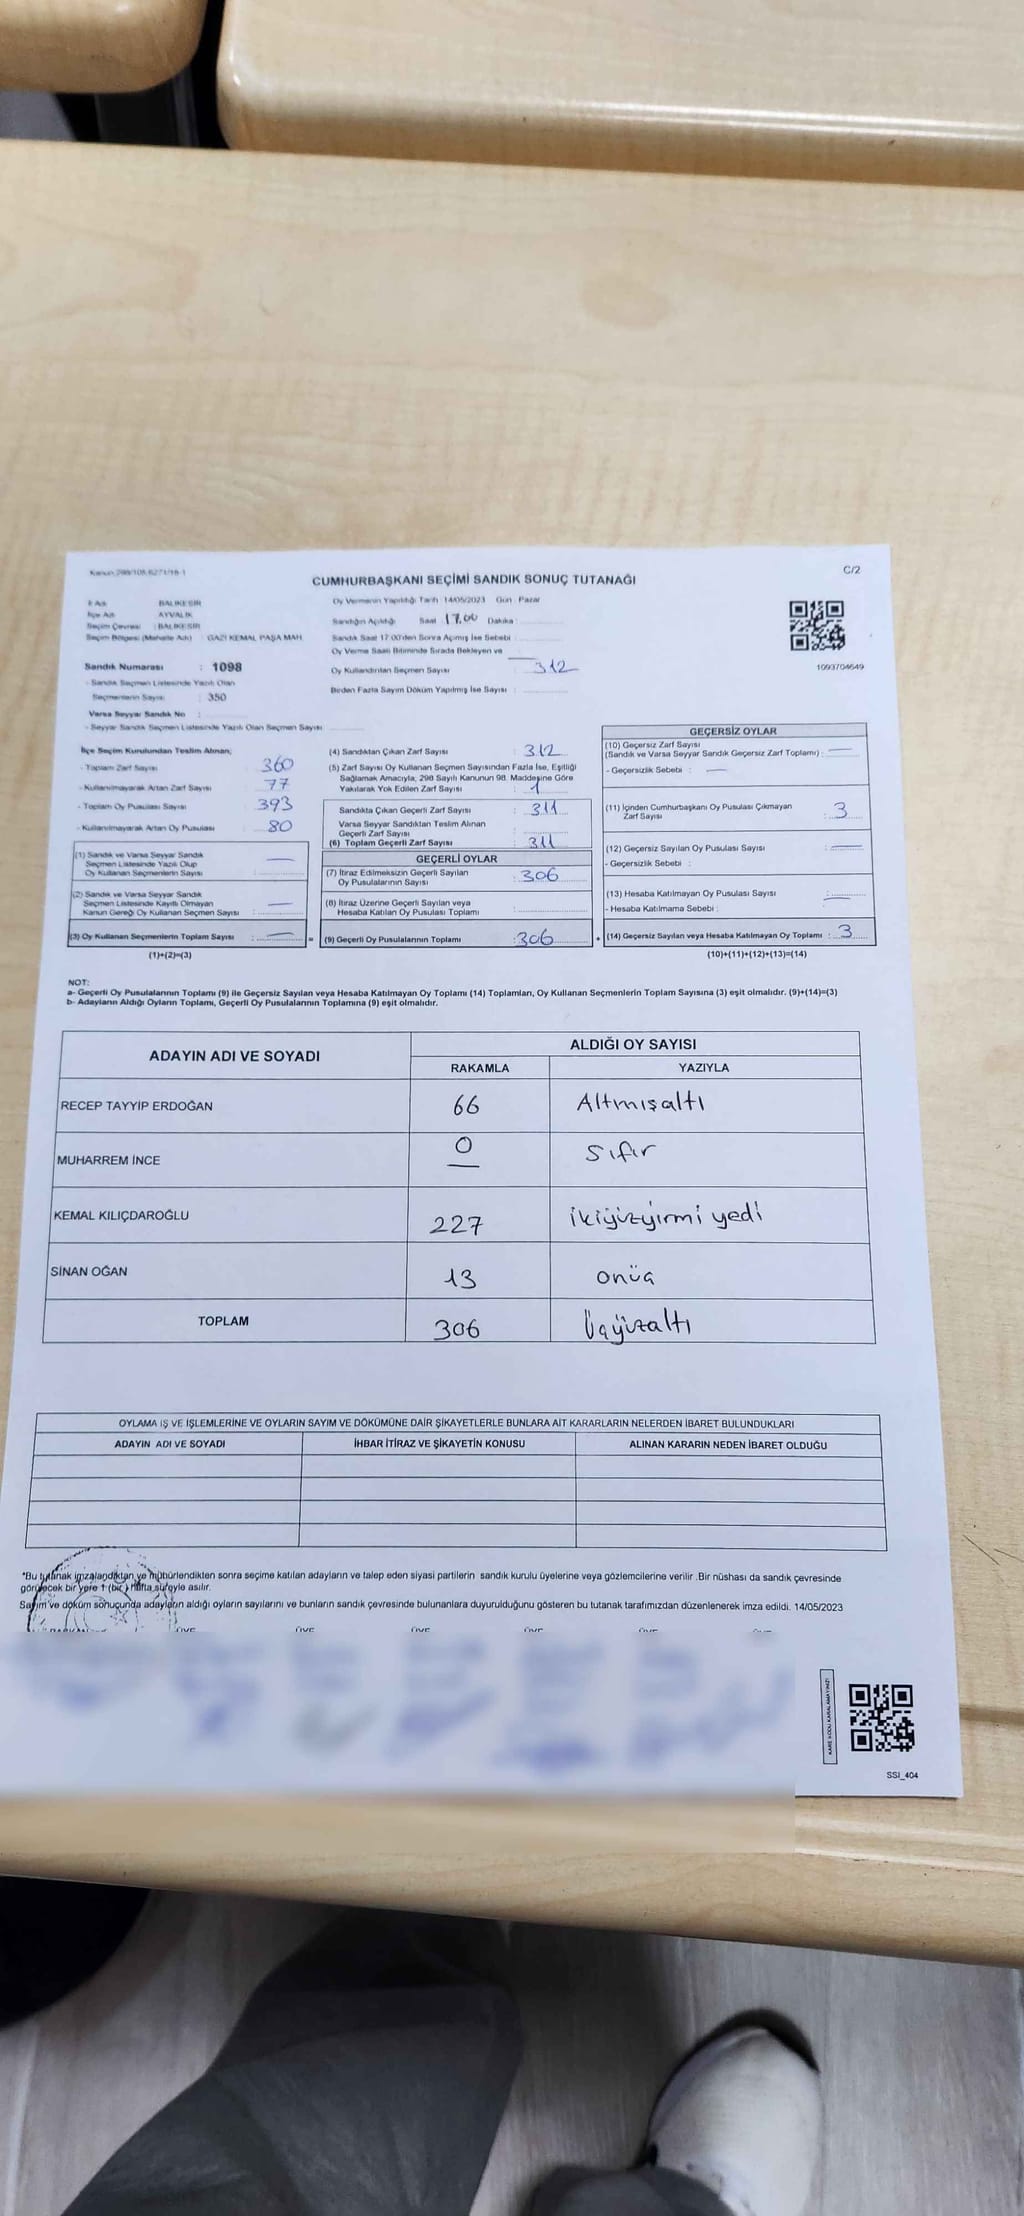 CUMHURBAŞKANI SEÇİMİ SANDIK SONUÇ TUTANAĞI
C/2
İl Adı BALIKESİR
İlçe Adı AYVALIK
Seçim Çevresi : BALIKESİR
Seçim Bölgesi (Mahalle Adı) : GAZİ KEMAL PAŞA MAH.
Sandık Numarası : 1098
- Sandık Seçmen Listesinde Yazılı Olan
Seçmenlerin Sayısı : 350
Varsa Seyyar Sandık No :
- Seyyar Sandık Seçmen Listesinde Yazılı Olan Seçmen Sayısı :
Oy Vermenin Yapıldığı Tarih 14/05/2023 Gün : Pazar
Sandığın Açıldığı Saat 17.00 Dakika :
Sandık Saat 17:00'den Sonra Açılmış İse Sebebi
Oy Verme Saati Bitiminde Sırada Bekleyen ve
Oy Kullandırılan Seçmen Sayısı : 312
Birden Fazla Sayım Döküm Yapılmış İse Sayısı :
1093704649
İlçe Seçim Kurulundan Teslim Alınan;
- Toplam Zarf Sayısı : 360
- Kullanılmayarak Artan Zarf Sayısı : 77
- Toplam Oy Pusulası Sayısı : 393
- Kullanılmayarak Artan Oy Pusulası : 80
(1) Sandık ve Varsa Seyyar Sandık
Seçmen Listesinde Yazılı Olup
Oy Kullanan Seçmenlerin Sayısı : —
(2) Sandık ve Varsa Seyyar Sandık
Seçmen Listesinde Kayıtlı Olmayan
Kanun Gereği Oy Kullanan Seçmen Sayısı : —
(3) Oy Kullanan Seçmenlerin Toplam Sayısı : —
(1)+(2)=(3)
=
(4) Sandıktan Çıkan Zarf Sayısı : 312
(5) Zarf Sayısı Oy Kullanan Seçmen Sayısından Fazla İse, Eşitliği
Sağlamak Amacıyla; 298 Sayılı Kanunun 98. Maddesine Göre
Yakılarak Yok Edilen Zarf Sayısı : 1
Sandıkta Çıkan Geçerli Zarf Sayısı : 311
Varsa Seyyar Sandıktan Teslim Alınan
Geçerli Zarf Sayısı
(6) Toplam Geçerli Zarf Sayısı : 311
GEÇERLİ OYLAR
(7) İtiraz Edilmeksizin Geçerli Sayılan
Oy Pusulalarının Sayısı : 306
(8) İtiraz Üzerine Geçerli Sayılan veya
Hesaba Katılan Oy Pusulası Toplamı :
(9) Geçerli Oy Pusulalarının Toplamı : 306
+
GEÇERSİZ OYLAR
(10) Geçersiz Zarf Sayısı
(Sandık ve Varsa Seyyar Sandık Geçersiz Zarf Toplamı) : —
- Geçersizlik Sebebi : —
(11) İçinden Cumhurbaşkanı Oy Pusulası Çıkmayan
Zarf Sayısı : 3
(12) Geçersiz Sayılan Oy Pusulası Sayısı : —
- Geçersizlik Sebebi :
(13) Hesaba Katılmayan Oy Pusulası Sayısı : —
- Hesaba Katılmama Sebebi :
(14) Geçersiz Sayılan veya Hesaba Katılmayan Oy Toplamı : 3
(10)+(11)+(12)+(13)=(14)
NOT:
a- Geçerli Oy Pusulalarının Toplamı (9) ile Geçersiz Sayılan veya Hesaba Katılmayan Oy Toplamı (14) Toplamları, Oy Kullanan Seçmenlerin Toplam Sayısına (3) eşit olmalıdır. (9)+(14)=(3)
b- Adayların Aldığı Oyların Toplamı, Geçerli Oy Pusulalarının Toplamına (9) eşit olmalıdır.
ADAYIN ADI VE SOYADI ALDIĞI OY SAYISI
RAKAMLA YAZIYLA
RECEP TAYYİP ERDOĞAN 66 Altmışaltı
MUHARREM İNCE 0 Sıfır
KEMAL KILIÇDAROĞLU 227 ikiyüzyirmi yedi
SİNAN OĞAN 13 onüç
TOPLAM 306 Üçyüzaltı
OYLAMA İŞ VE İŞLEMLERİNE VE OYLARIN SAYIM VE DÖKÜMÜNE DAİR ŞİKAYETLERLE BUNLARA AİT KARARLARIN NELERDEN İBARET BULUNDUKLARI
ADAYIN ADI VE SOYADI İHBAR İTİRAZ VE ŞİKAYETİN KONUSU ALINAN KARARIN NEDEN İBARET OLDUĞU
"Bu tutanak imzalandıktan ve mühürlendikten sonra seçime katılan adayların ve talep eden siyasi partilerin sandık kurulu üyelerine veya gözlemcilerine verilir .Bir nüshası da sandık çevresinde
görülecek bir yere 1 (bir ) hafta süreyle asılır.
Sayım ve döküm sonuçunda adayların aldığı oyların sayılarını ve bunların sandık çevresinde bulunanlara duyurulduğunu gösteren bu tutanak tarafımızdan düzenlenerek imza edildi. 14/05/2023
KARE KODU KARALAMAYINIZ!
SSI_404